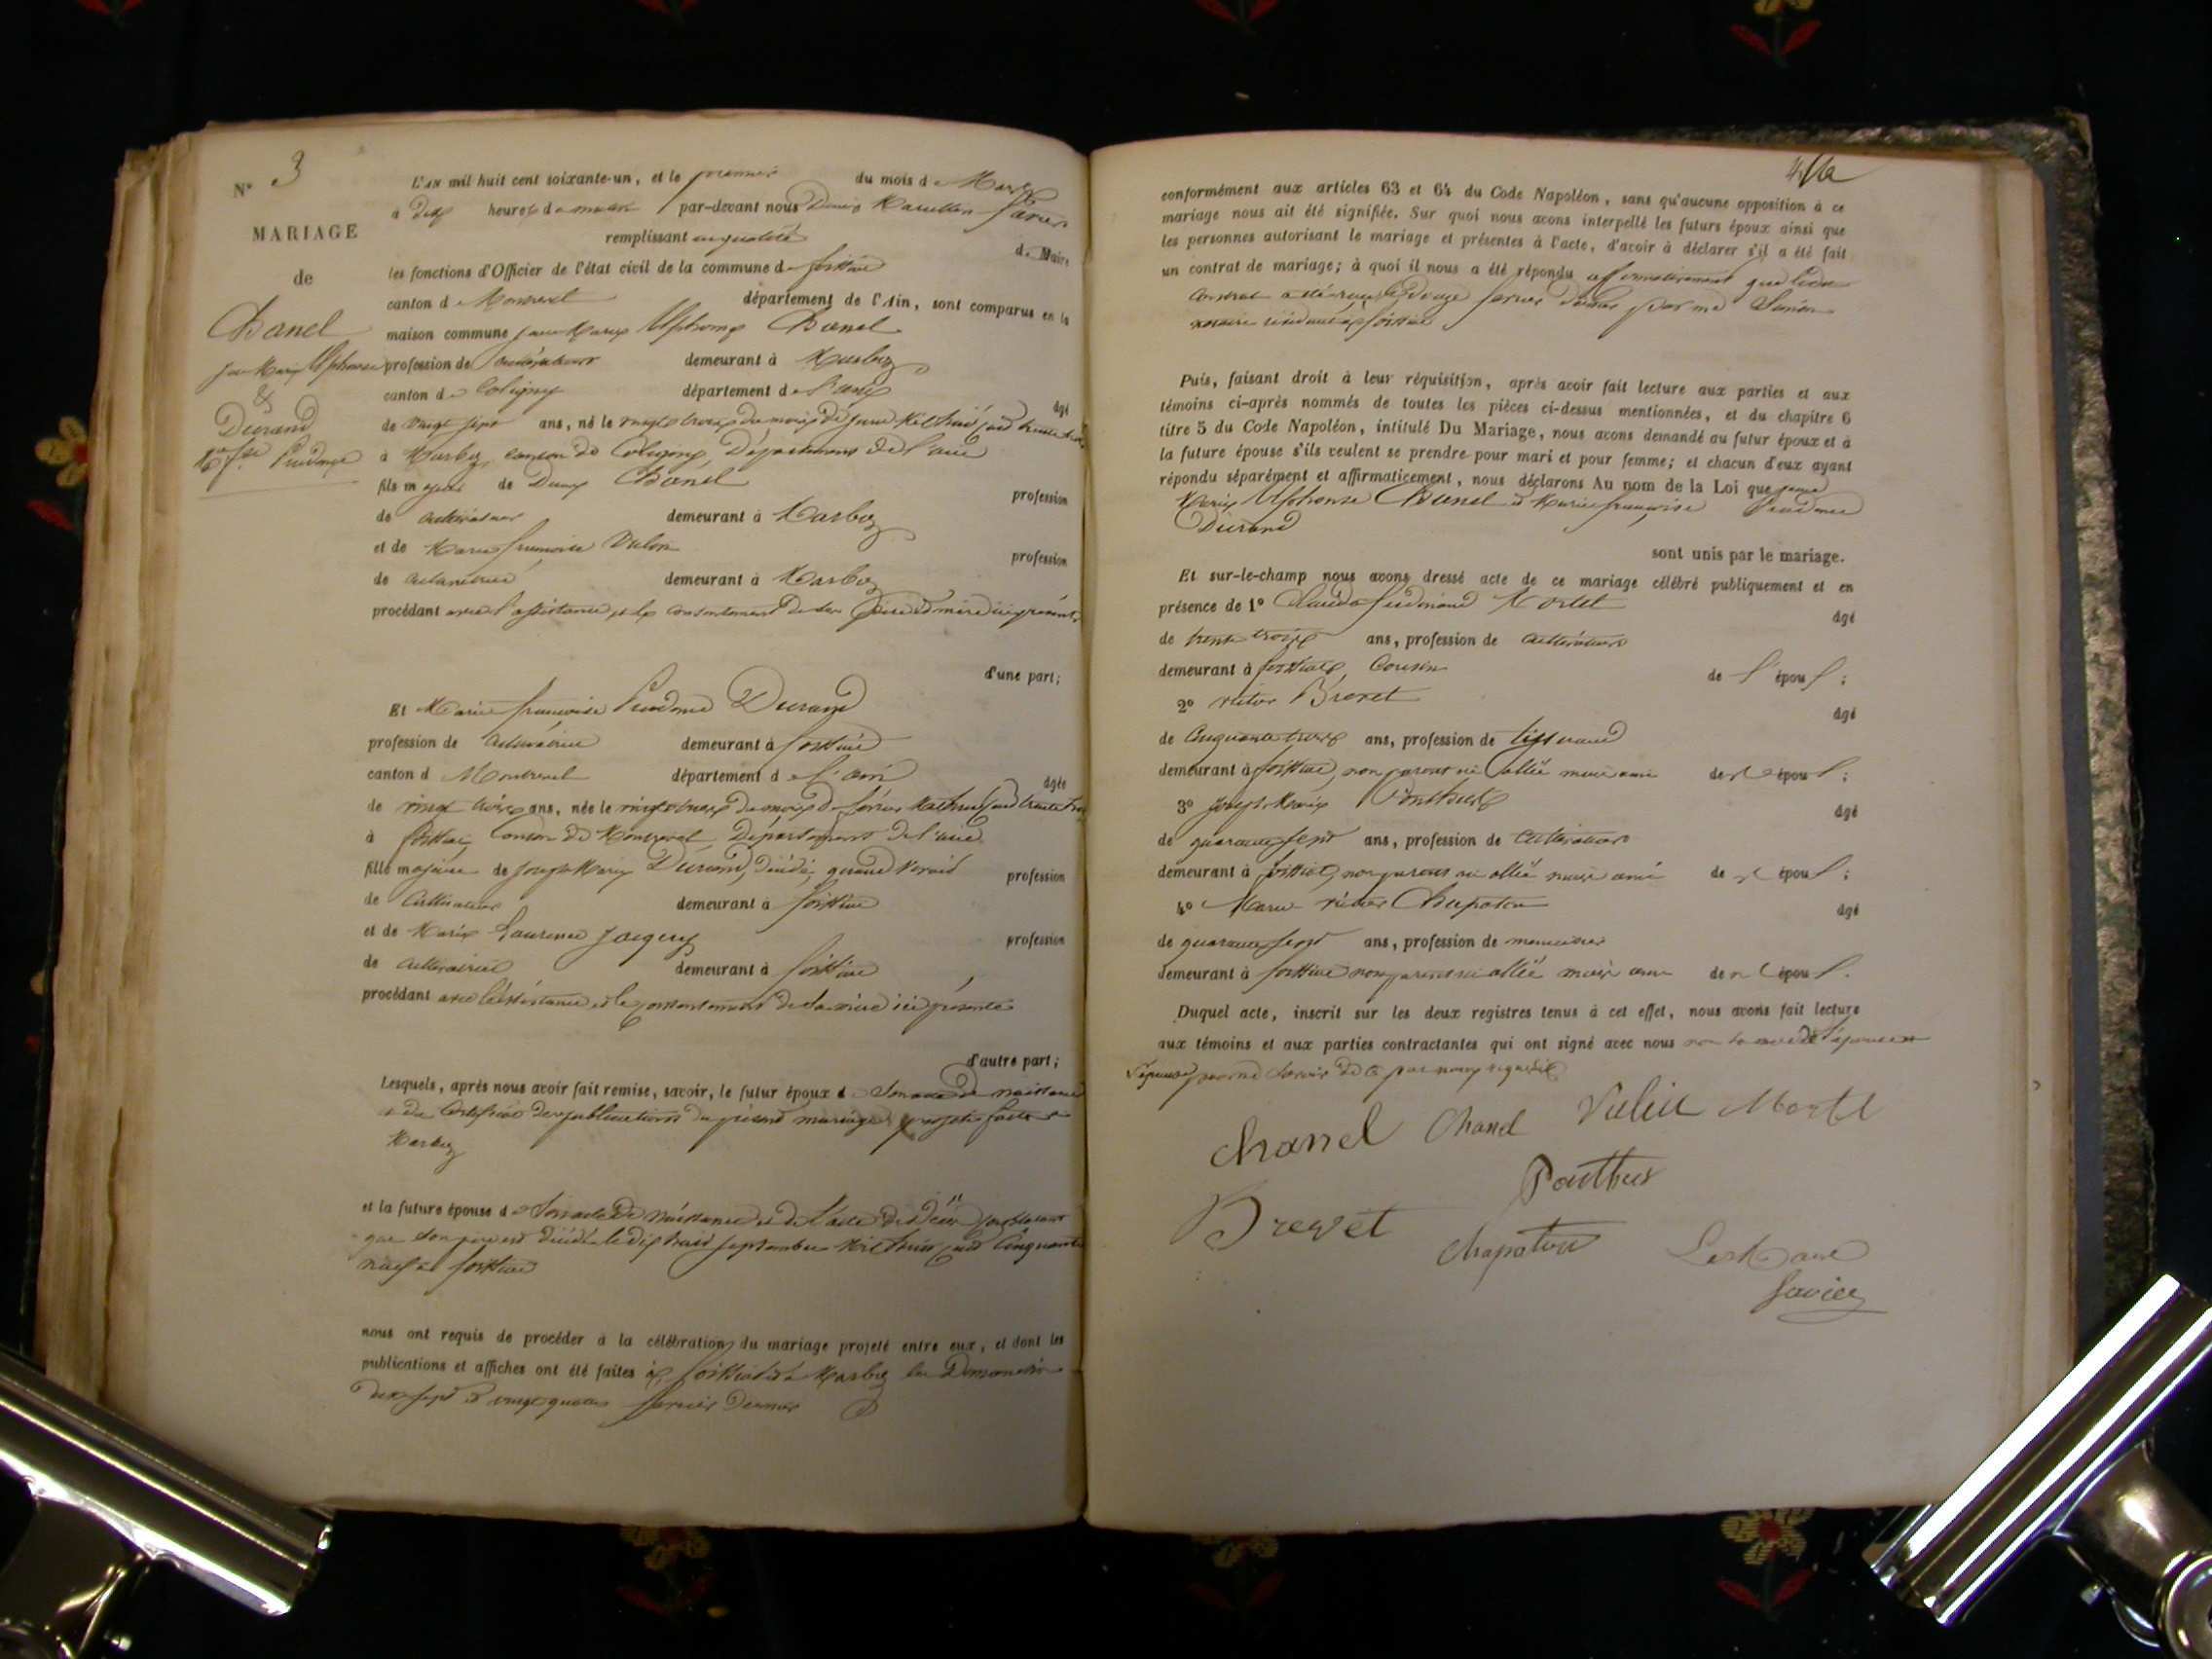 N° 3
MARIAGE
de
Chanel
Jean Marie Alphonse
&
Durand
Mie fse Prudence
L'AN mil huit cent soixante-un, et le premier du mois de Mars
à dix heures du matin par-devant nous Denis Marcellin Favier
remplissant en qualité de Maire
les fonctions d'Officier de l'état civil de la commune de foissiat
canton de Montrevel département de l'Ain, sont comparus en la
maison commune Jean Marie Alphonse Chanel
profession de cultivateur demeurant à Marboz
canton de Coligny département de l'ain âgé
de vingt sept ans, né le vingt trois du mois de juin mil huit cent trente trois
à Marboz canton de Coligny Département de l'ain
fils majeur de Denis Chanel profession
de cultivateur demeurant à Marboz
et de Marie françoise profession
de cultivatrice demeurant à Marboz
procédant avec l'assistance et le consentement de ses père et mère ici présents
d'une part;
Et Marie françoise Prudence Durand
profession de cultivatrice demeurant à foissiat
canton de Montrevel département de l'ain âgée
de vingt trois ans, née le du mois de février mil huit cent trente
à foissiat canton de Montrevel Département de l'ain
fille majeure de Joseph Marie Durand, décédé, quand vivait profession
de cultivateur demeurant à foissiat
et de Marie Laurence Jacquet profession
de cultivatrice demeurant à foissiat
procédant avec l'assistance et le consentement de sa mère ici présente
d'autre part;
Lesquels, après nous avoir fait remise, savoir, le futur époux de son acte de naissance
et du certificat des publications du présent mariage projeté faites à
Marboz
et la future épouse de son acte de naissance et de l'acte de décès constatant
que son père est décédé le dix huit septembre mil huit cent cinquante
neuf à foissiat
nous ont requis de procéder à la célébration du mariage projeté entre eux, et dont les
publications et affiches ont été faites à foissiat et à Marboz les Dimanches
dix sept et vingt quatre février dernier
conformément aux articles 63 et 64 du Code Napoléon, sans qu'aucune opposition à ce
mariage nous ait été signifiée. Sur quoi nous avons interpellé les futurs époux ainsi que
les personnes autorisant le mariage et présentes à l'acte, d'avoir à déclarer s'il a été fait
un contrat de mariage; à quoi il nous a été répondu affirmativement que ledit
contrat a été reçu le douze février dernier par me
notaire résidant à foissiat
Puis, faisant droit à leur réquisition, après avoir fait lecture aux parties et aux
témoins ci-après nommés de toutes les pièces ci-dessus mentionnées, et du chapitre 6
titre 5 du Code Napoléon, intitulé Du Mariage, nous avons demandé au futur époux et à
la future épouse s'ils veulent se prendre pour mari et pour femme; et chacun d'eux ayant
répondu séparément et affirmaticement, nous déclarons Au nom de la Loi que Jean
Marie Alphonse Chanel et Marie françoise Prudence
Durand
sont unis par le mariage.
Et sur-le-champ nous avons dressé acte de ce mariage célébré publiquement et en
présence de 1° Claude ferdinand Mortel âgé
de trente trois ans, profession de cultivateur
demeurant à foissiat, cousin de l'époux;
2° Victor Brevet âgé
de cinquante trois ans, profession de tisserand
demeurant à foissiat, non parent ni allié mais ami des époux;
3° Joseph Marie Ponthus âgé
de quarante sept ans, profession de cultivateur
demeurant à foissiat, non parent ni allié mais ami des époux;
4° Marie Victor Chapaton âgé
de quarante sept ans, profession de menuisier
demeurant à foissiat non parent ni allié mais ami des époux.
Duquel acte, inscrit sur les deux registres tenus à cet effet, nous avons fait lecture
aux témoins et aux parties contractantes qui ont signé avec nous non la mère de l'épouse
l'épouse pour ne savoir de ce par nous requises
chanel Chanel Mortel
Ponthus
Brevet
Chapaton Le Maire
Favier